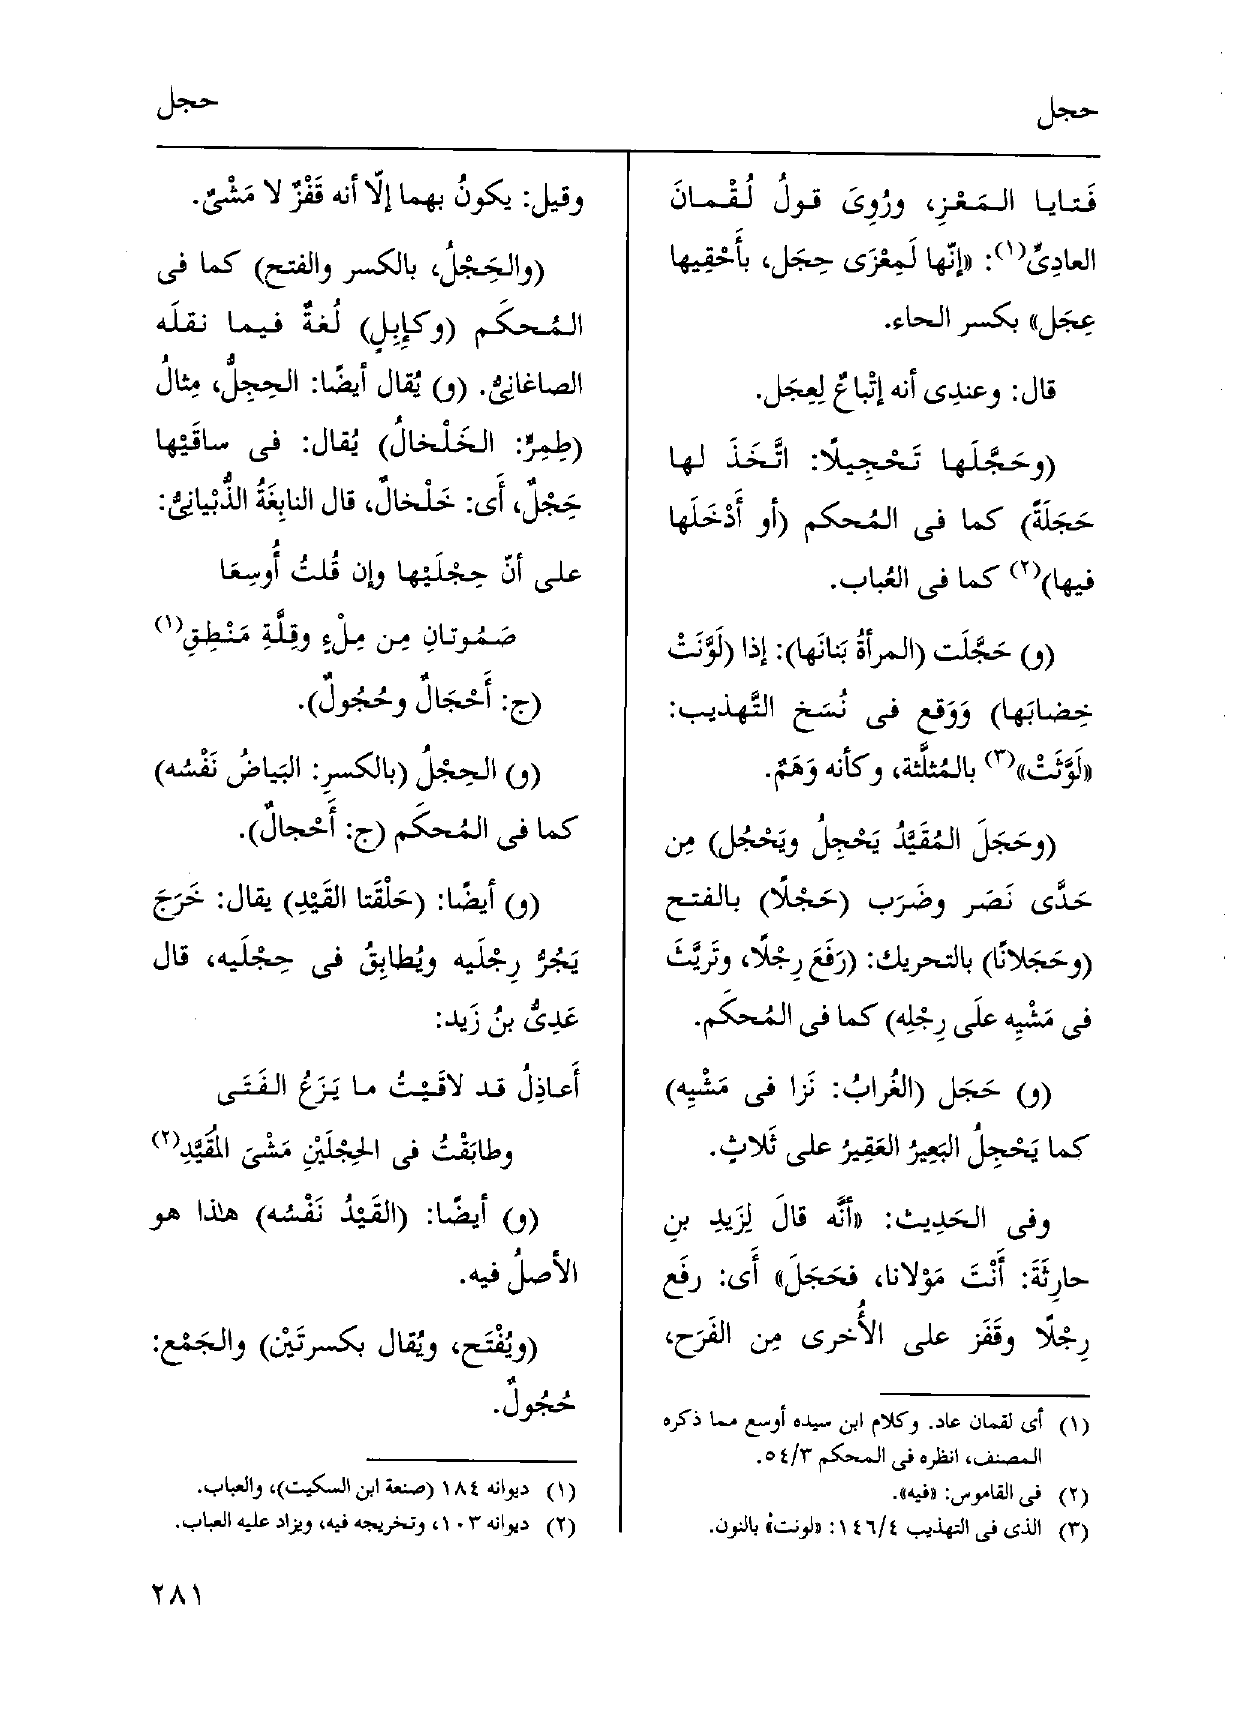 حجل
حجل
فَتايا المَعْزِ، ورُوِىَ قولُ لُقْمانَ
العادِىِّ(١): «إنّها لَمِعْزَى حِجَل، بأَحْقِيها
عِجَل» بكسر الحاء.
قال: وعندِى أنه إتْباعٌ لِعِجَل.
(وحَجَّلَها تَحْجِيلًا: اتَّخَذَ لها
حَجَلَةً) كما فى المُحكم (أو أَدْخَلَها
فيها)(٢) كما فى العُباب.
(و) حَجَّلَت (المرأةُ بَنانَها): إذا (لَوَّنَتْ
خِضابَها) وَوَقع فى نُسَخ التَّهذيب:
«لَوَّثَتْ»(٣) بالمُثلَّثة، وكأنه وَهَمٌ.
(وحَجَلَ المُقَيَّدُ يَحْجِلُ ويَحْجُل) مِن
حَدَّى نَصَر وضَرَب (حَجْلًا) بالفتح
(وحَجَلانًا) بالتحريك: (رَفَعَ رِجْلًا، وتَرَيَّثَ
فى مَشْيِه علَى رِجْلِه) كما فى المُحكَم.
(و) حَجَل (الغُرابُ: نَزا فى مَشْيِه)
كما يَحْجِلُ البَعِيرُ العَقِيرُ على ثَلاثٍ.
وفى الحَدِيث: «أنَّه قالَ لِزَيدِ بنِ
حارِثَةَ: أَنْتَ مَوْلانا، فحَجَلَ» أى: رفَع
رِجْلًا وقَفَز على الأُخرى مِن الفَرَح،
(١) أى لقمان عاد. وكلام ابن سيده أوسع مما ذكره
المصنف، انظره فى المحكم ٥٤/٣.
(٢) فى القاموس: «فيه».
(٣) الذى فى التهذيب ١٤٦/٤: «لونت» بالنون.
وقيل: يكونُ بهما إلّا أنه قَفْزٌ لا مَشْىٌ.
(والحَِجْلُ، بالكسر والفتح) كما فى
المُحكَم (وكإِبِلٍ) لُغةٌ فيما نقلَه
الصاغانِىُّ. (و) يُقال أيضًا: الحِجِلُّ، مِثالُ
(طِمِرٍّ: الخَلْخالُ) يُقال: فى ساقَيْها
حَِجْلٌ، أَى: خَلْخالٌ، قال النابِغَةُ الذُّبْيانِىُّ:
على أنّ حِجْلَيْها وإن قُلتُ أُوسِعَا
صَمُوتانِ مِن مِلْءٍ وقِلَّةِ مَنْطِقِ(١)
(ج: أَحْجَالٌ وحُجُولٌ).
(و) الحِجْلُ (بالكسرِ: البَياضُ نَفْسُه)
كما فى المُحكَم (ج: أَحْجالٌ).
(و) أيضًا: (حَلْقَتا القَيْدِ) يقال: خَرَجَ
يَجُرُّ رِجْلَيه ويُطابِقُ فى حِجْلَيه، قال
عَدِىُّ بنُ زَيد:
أَعاذِلُ قد لاقَيْتُ ما يَزَعُ الفَتَى
وطابَقْتُ فى الحِجْلَيْنِ مَشْىَ المُقَيَّدِ(٢)
(و) أيضًا: (القَيْدُ نَفْسُه) هٰذا هو
الأَصلُ فيه.
(ويُفْتَح، ويُقال بكسرتَيْن) والجَمْع:
حُجُولٌ.
(١) ديوانه ١٨٤ (صنعة ابن السكيت)، والعباب.
(٢) ديوانه ١٠٣، وتخريجه فيه، ويزاد عليه العباب.
٢٨١